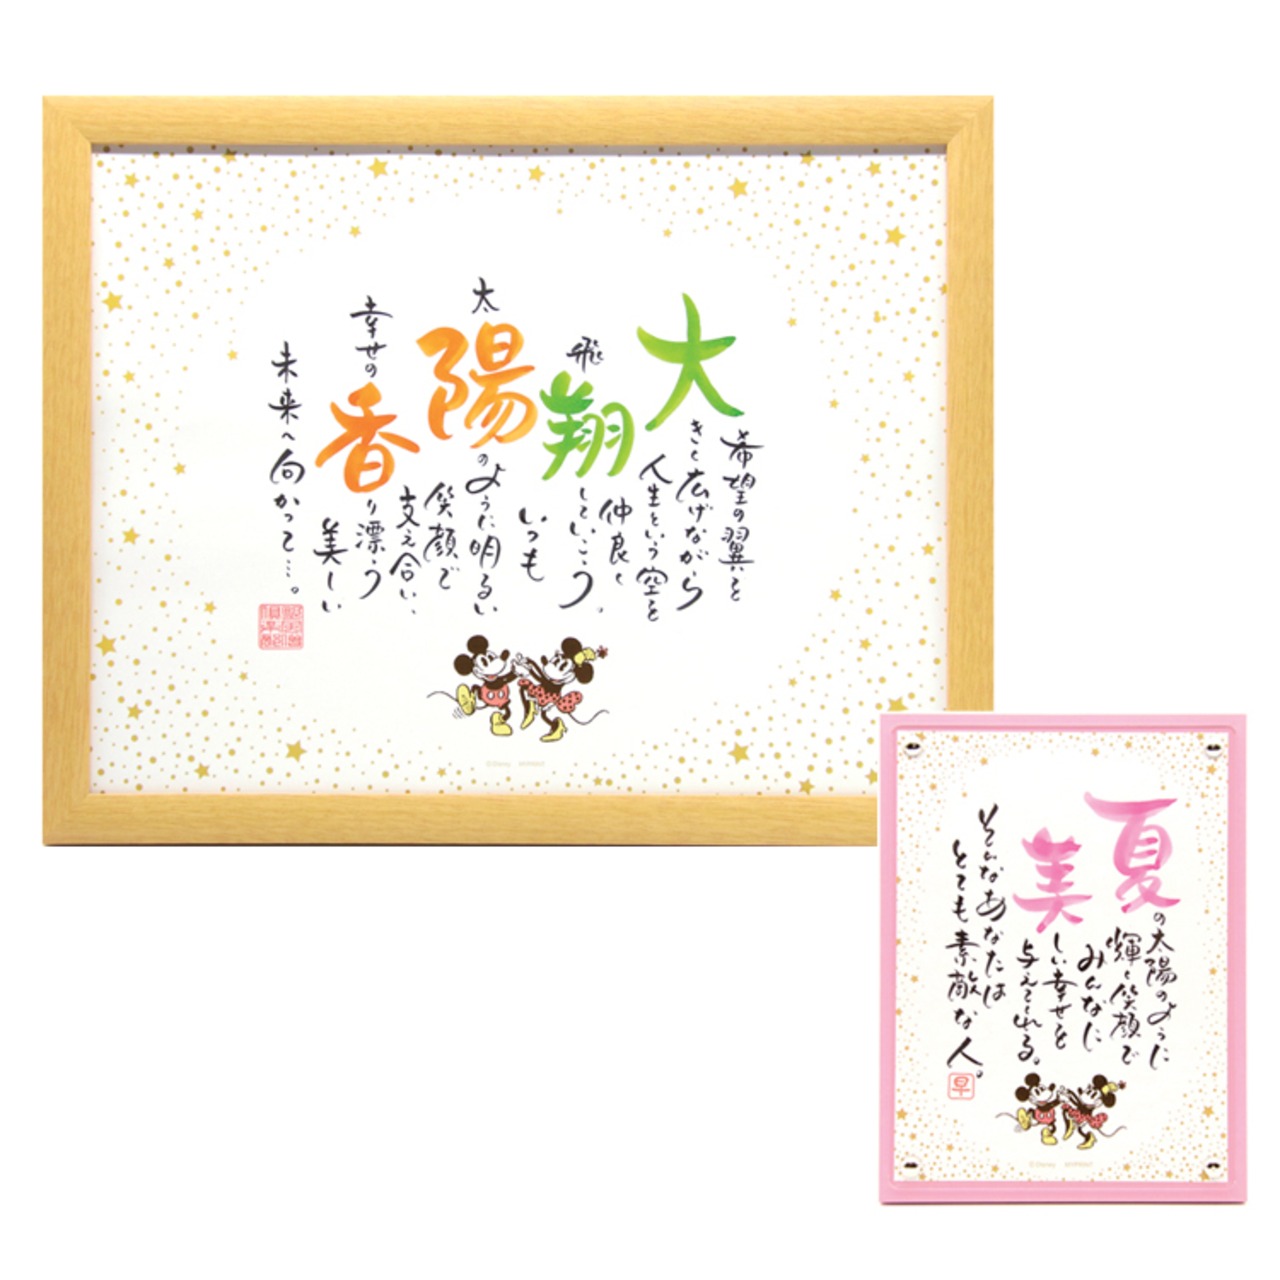 希望の翼を
大きく広げながら
人生という空を
飛翔していこう。
仲良く
いつも
太陽のように明るい
笑顔で
支え合い、
幸せの香り漂う
美しい
未来へ向かって…。
©Disney
夏の太陽のように
輝く笑顔で
みんなに
美しい幸せを
与えてくれる。
そんなあなたは
とても素敵な人。
早
©Disney